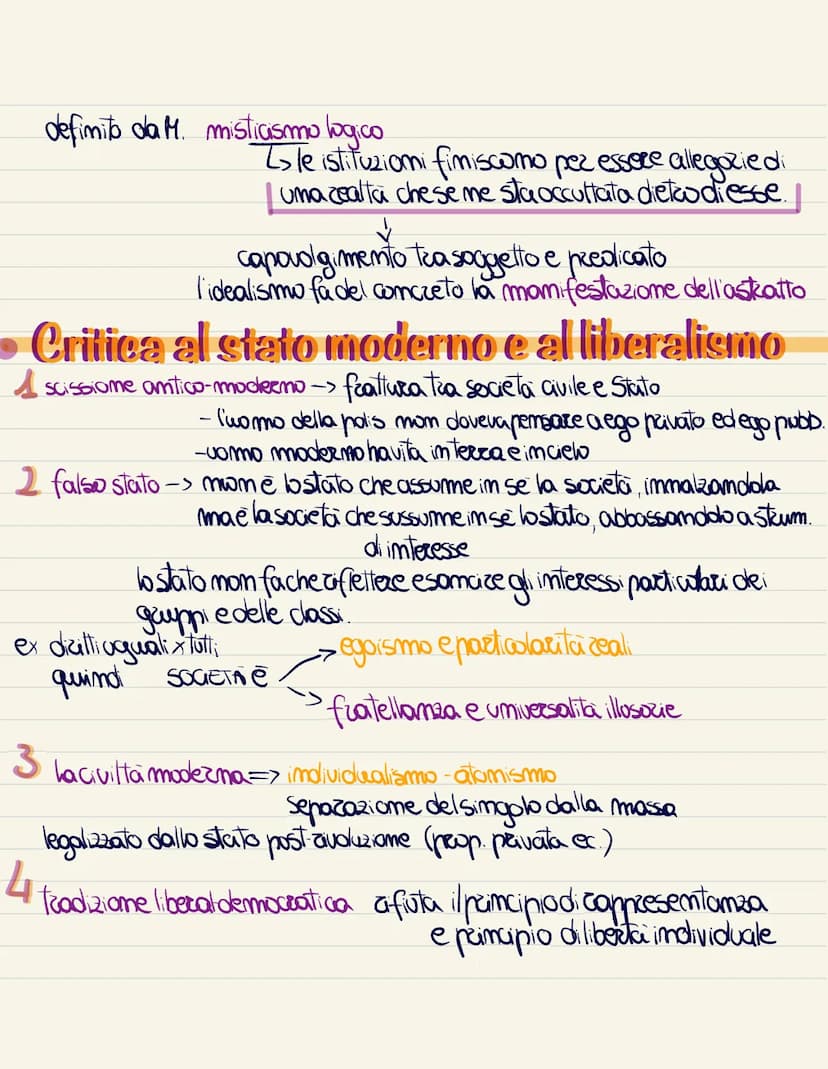 definito da M. misticismo logico
↳ le istituzioni finiscono per essere allegorie di
una realtà che se ne sta occultata dietro di esse.
↓
capovolgimento tra soggetto e predicato
l'idealismo fa del concreto la manifestazione dell'astratto
• Critica al stato moderno e al liberalismo
1 scissione antico-moderno -> frattura tra società civile e Stato
- l'uomo della polis non doveva pensare a ego privato ed ego pubb.
- uomo moderno ha vita in terra e in cielo
2 falso stato -> non è lo stato che assume in sé la società, innalzandola
ma è la società che sussume in sé lo stato, abbassandolo a strum.
di interesse
lo stato non fa che riflettere e sancire gli interessi particolari dei
gruppi e delle classi.
ex diritti uguali x tutti
-> egoismo e particolarità reali
quindi SOCIETÀ È
-> fratellanza e universalità illusorie
3 la civiltà moderna => individualismo - atomismo
separazione del singolo dalla massa
legalizzato dallo stato post-rivoluzione (prop. privata ec.)
4 tradizione liberal democratica rifiuta il principio di rappresentanza
e principio di libertà individuale